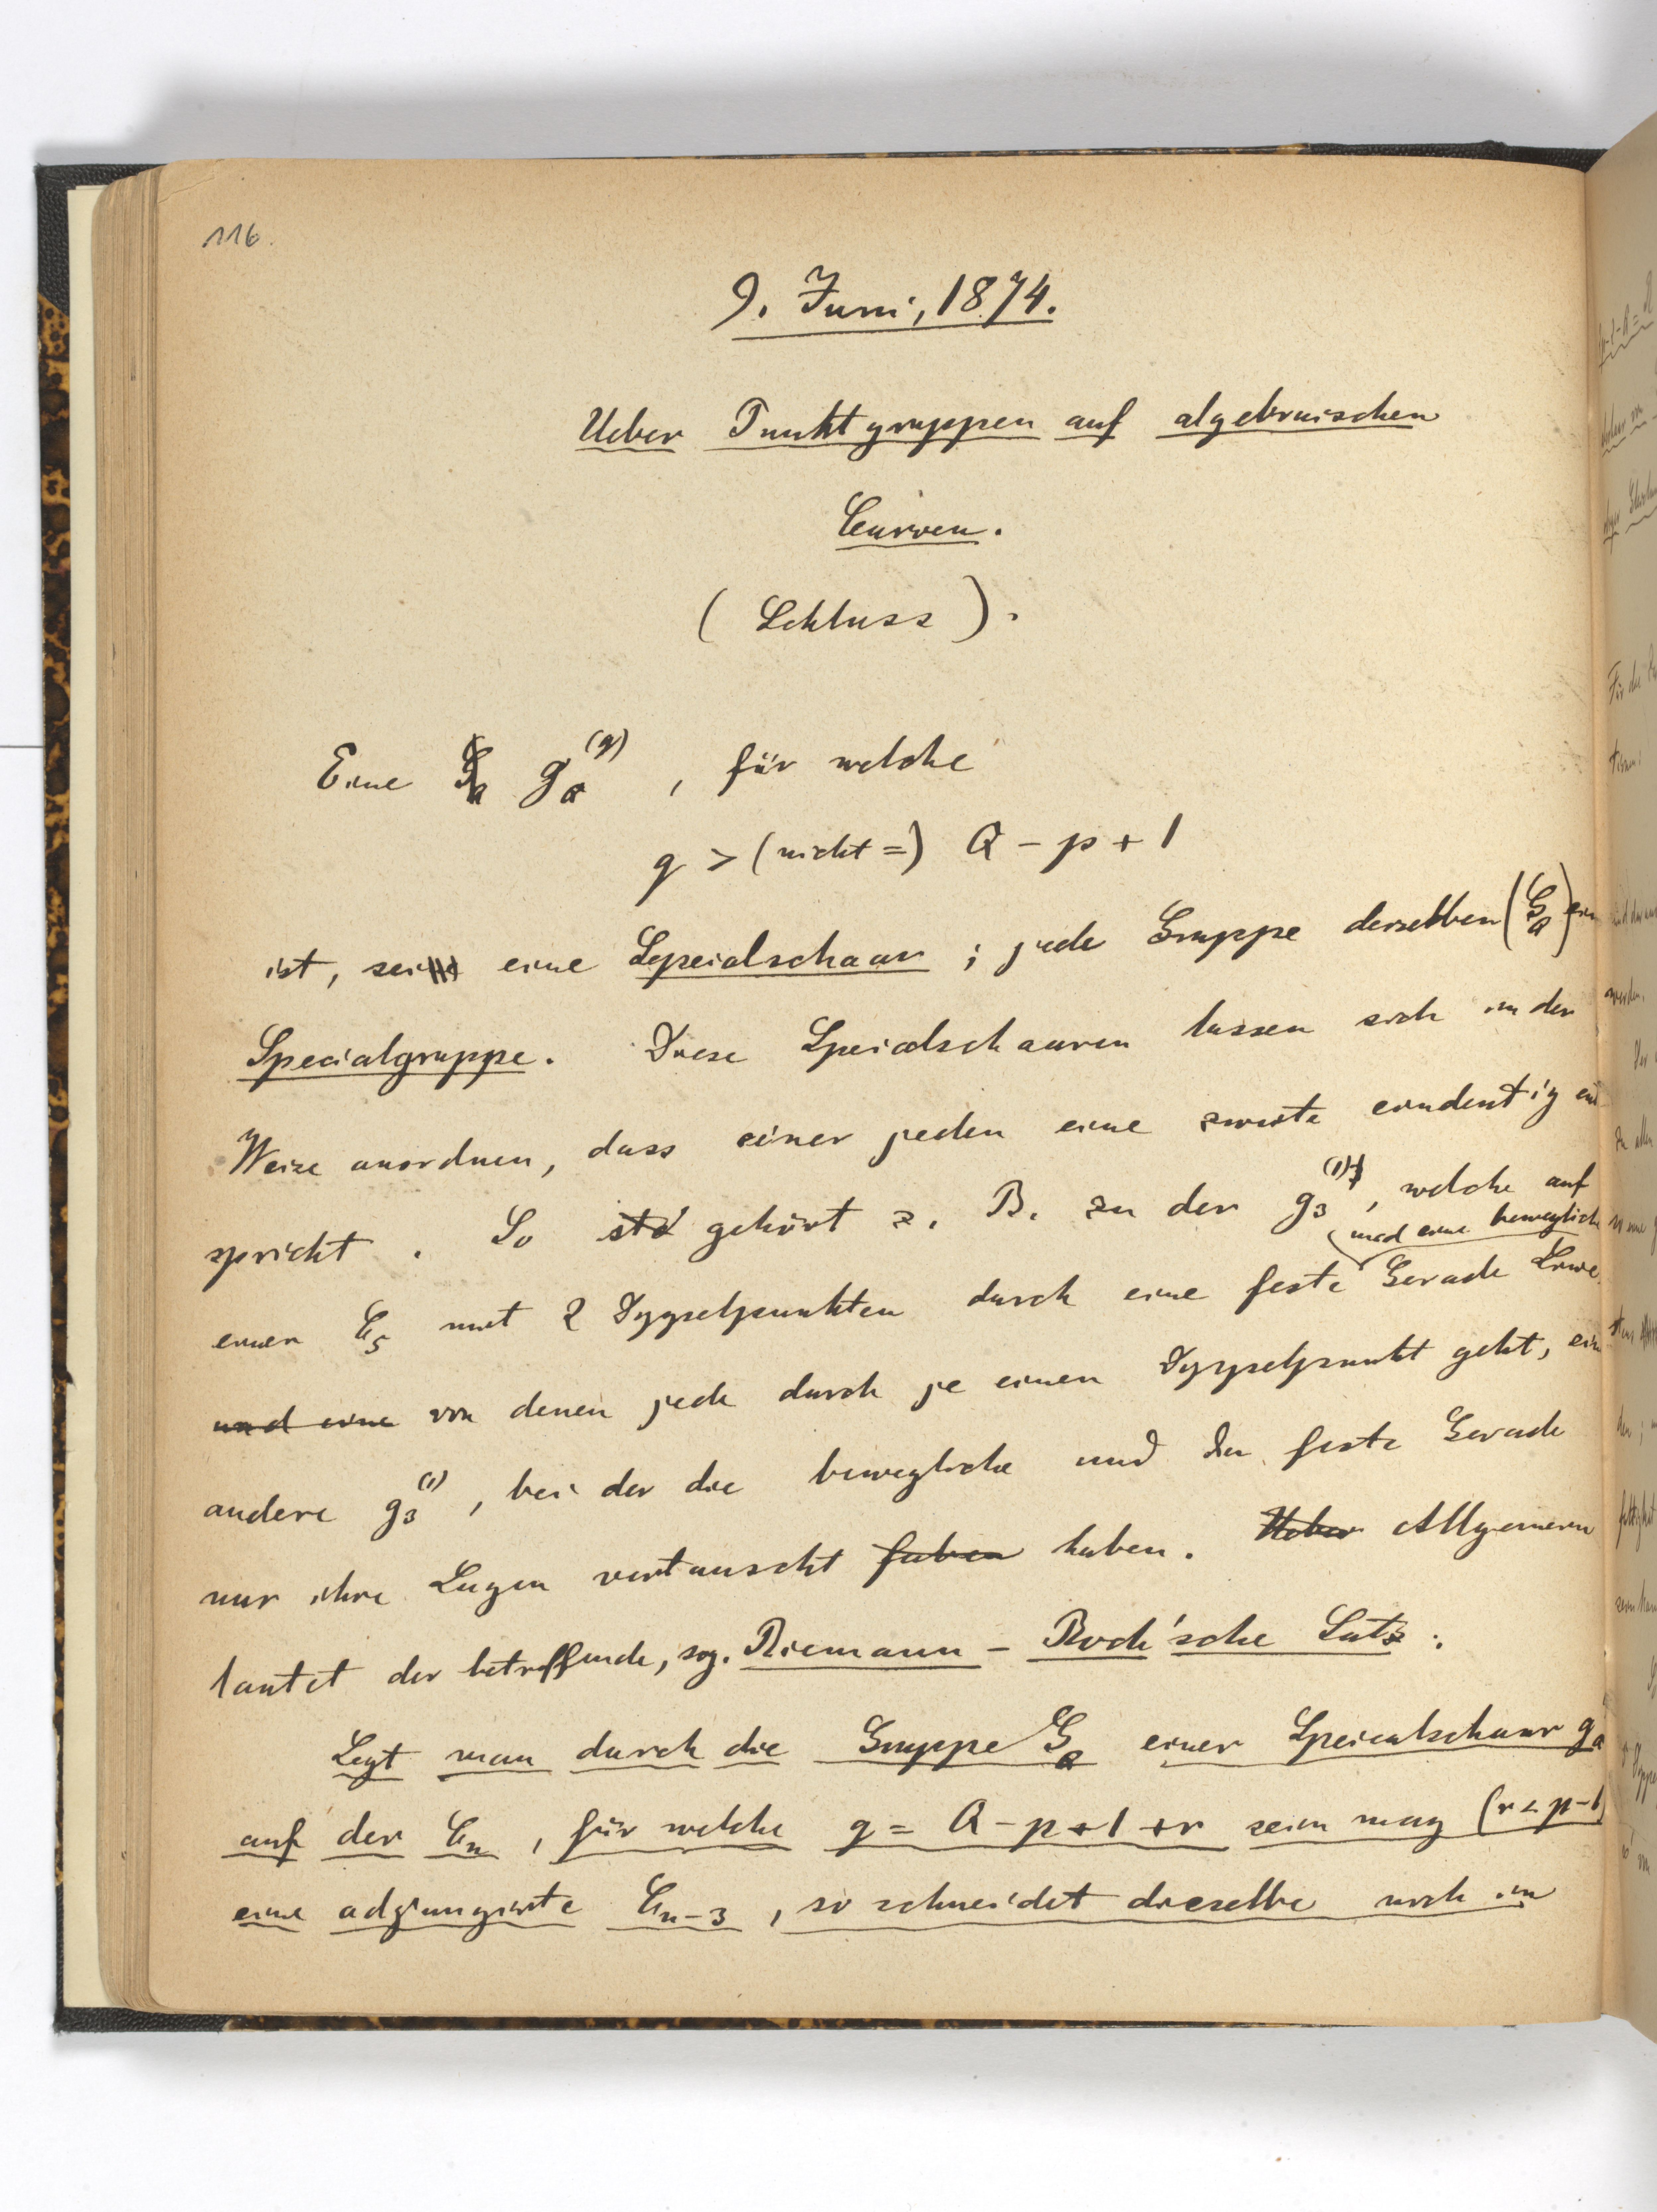 116.
9. Juni, 1874.
Ueber Punktgruppen auf algebraischen
Curven.
(Schluss).
Eine g_Q^(q), für welche
q > (nicht =) Q - p + 1
ist, sei eine Specialschaar; jede Gruppe derselben (G_Q) ein
Specialgruppe. Diese Specialschaaren lassen sich in der
Weise anordnen, dass einer jeden eine zweite eindeutig ent
spricht. So gehört z. B. zu der g_3^(1), welche auf
und eine bewegliche
einer C_5 mit 2 Doppelpunkten durch eine feste Gerade
und eine von denen jede durch je einen Doppelpunkt geht, eine
andere g_3^(1), bei der die bewegliche und die feste Gerade
nur ihre Lagen vertauscht haben. Allgemein
lautet der betreffende, sog. Riemann-Roch'sche Satz:
Legt man durch die Gruppe G_Q einer Specialschaar g_Q
auf der C_n, für welche q = Q - p + 1 + r sein mag (r < p-1)
eine adjungirte C_n-3, so schneidet dieselbe noch in